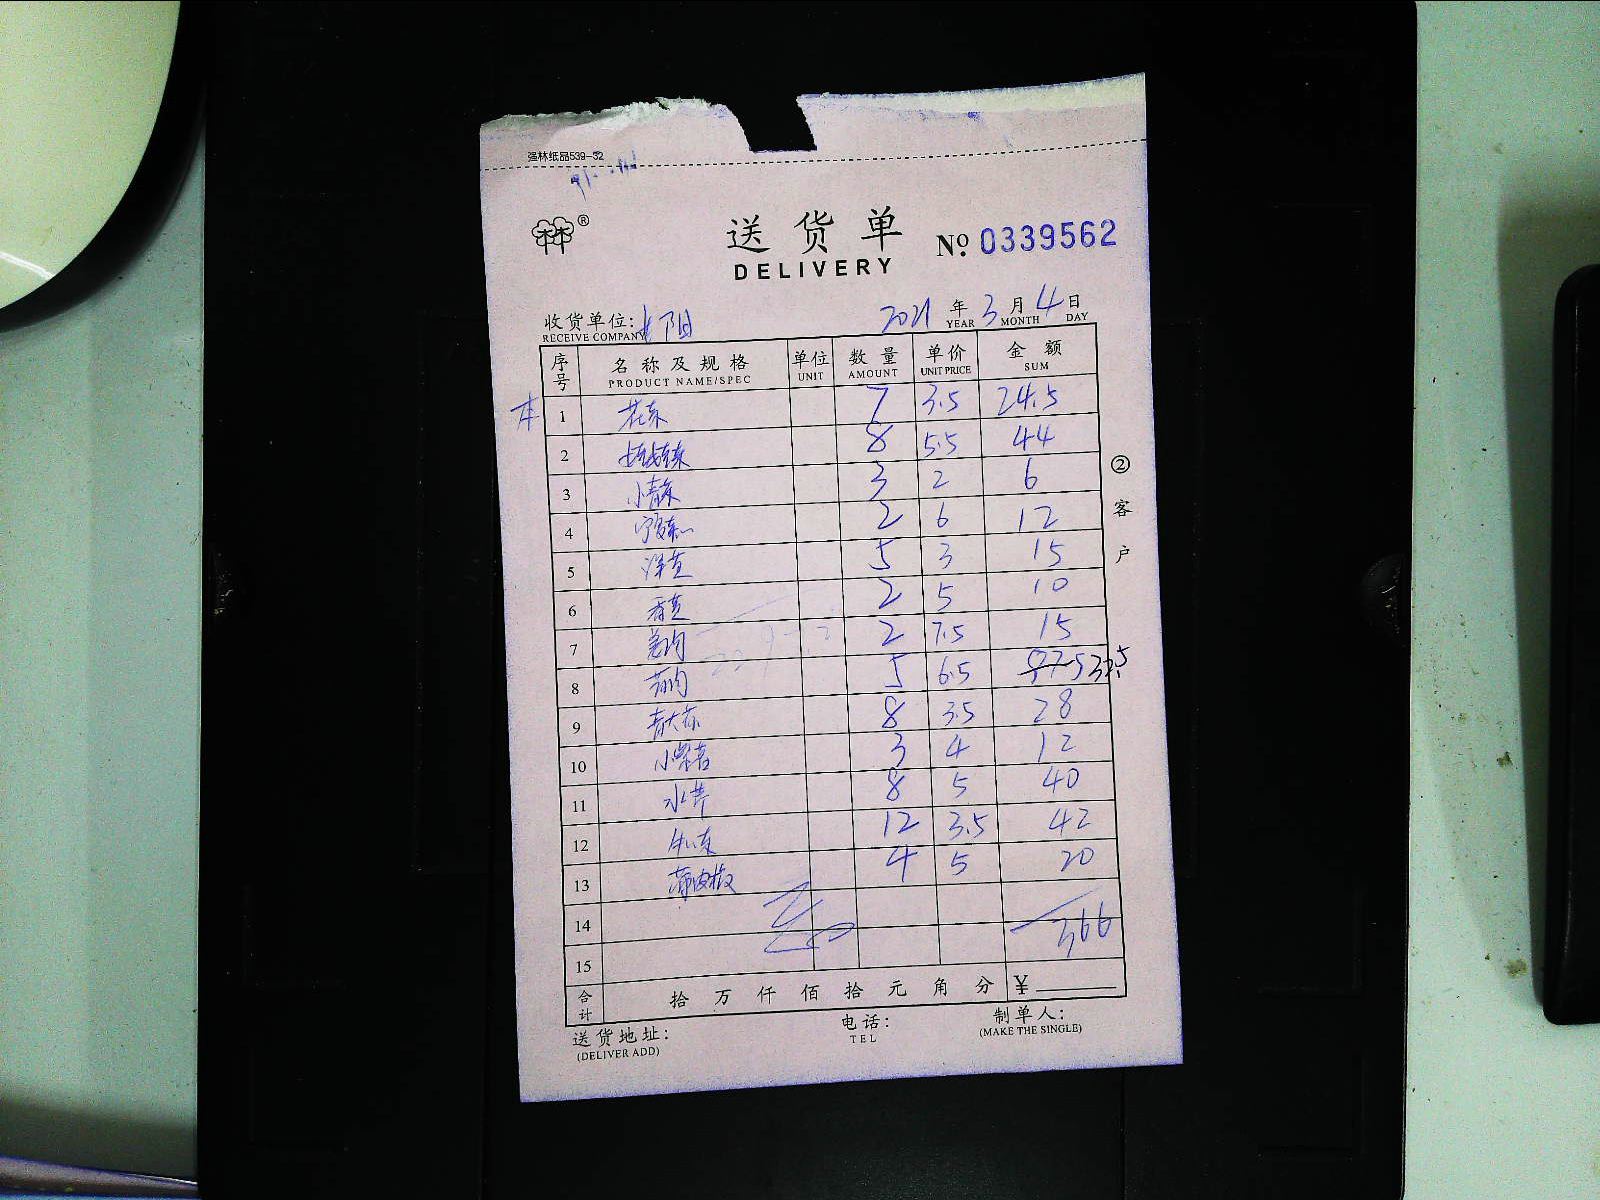 强林纸品539-32
林林®
送货单
DELIVERY
No. 0339562
收货单位: 阳
RECEIVE COMPANY
2021 年 3 月 4 日
YEAR MONTH DAY
序号 名称及规格 单位 数量 单价 金额
PRODUCT NAME/SPEC UNIT AMOUNT UNIT PRICE SUM
1 花菜 7 3.5 24.5
2 8 5.5 44
3 小青菜 3 2 6
4 2 6 12
5 洋芋 5 3 15
6 香芋 2 5 10
7 2 7.5 15
8 5 6.5 32.5
9 8 3.5 28
10 3 4 12
11 水芹 8 5 40
12 12 3.5 42
13 薄皮椒 4 5 20
14
366
15
合计 拾 万 仟 佰 拾 元 角 分 ¥
送货地址: 电话: 制单人:
(DELIVER ADD) TEL (MAKE THE SINGLE)
②客户